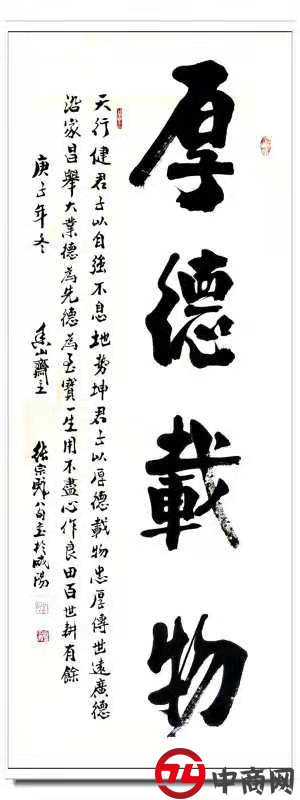 厚德載物
天行健君子以自強不息地勢坤君子以厚德載物忠厚傳世遠廣德
沿家昌舉大業德為先德為至寶一生用不盡心作良田百世耕有餘
庚子年冬 香山齋主 張宗 八旬 於咸陽
中商网